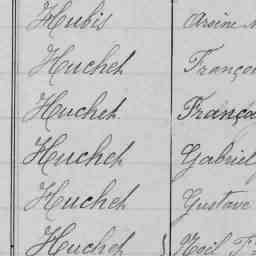 Hubis Arsène
Huchet Françoi
Huchet França
Huchet Gabriel
Huchet Gustave
Huchet Noël F